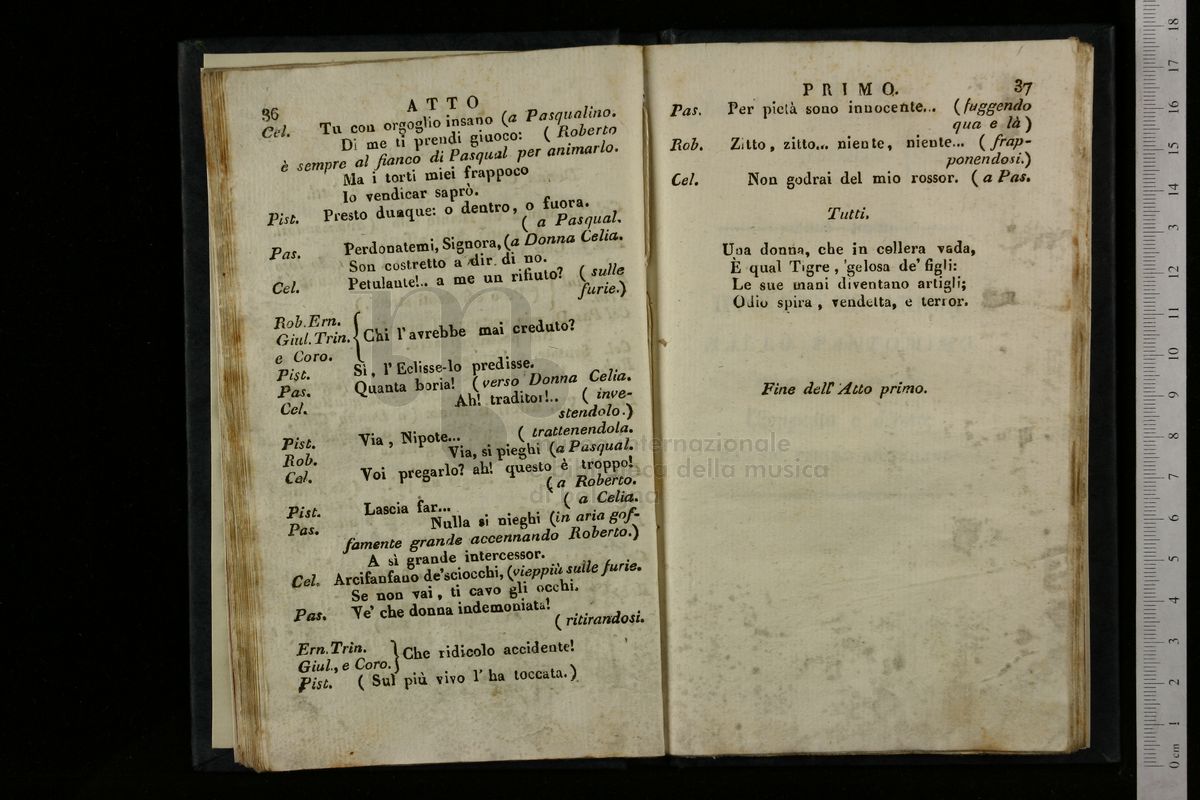 36
ATTO
Cel. Tu con orgoglio insano (a Pasqualino.
Di me ti prendi giuoco: ( Roberto
è sempre al fianco di Pasqual per animarlo.
Ma i torti miei frappoco
Io vendicar saprò.
Pist. Presto dunque: o dentro, o fuora.
( a Pasqual.
Pas. Perdonatemi, Signora, (a Donna Celia.
Son costretto a dir di no.
Cel. Petulante!.. a me un rifiuto? ( sulle
furie.)
Rob. Ern.
Giul. Trin. { Chi l'avrebbe mai creduto?
e Coro.
Pist. Sì, l'Eclisse-lo predisse.
Pas. Quanta boria! (verso Donna Celia.
Cel. Ah! traditor!.. ( inve-
stendolo.)
Pist. Via, Nipote... ( trattenendola.
Rob. Via, si pieghi (a Pasqual.
Cel. Voi pregarlo? ah! questo è troppo!
( a Roberto.
Pist. Lascia far... ( a Celia.
Pas. Nulla si nieghi (in aria gof-
famente grande accennando Roberto.)
A sì grande intercessor.
Cel. Arcifanfano de'sciocchi, (vieppiù sulle furie.
Se non vai, ti cavo gli occhi.
Pas. Ve' che donna indemoniata!
( ritirandosi.
Ern. Trin.
Giul., e Coro. } Che ridicolo accidente!
Pist. ( Sul più vivo l'ha toccata.)
PRIMO.
37
Pas. Per pietà sono innocente... (fuggendo
qua e là)
Rob. Zitto, zitto... niente, niente... (frap-
ponendosi.)
Cel. Non godrai del mio rossor. (a Pas.
Tutti.
Una donna, che in collera vada,
È qual Tigre, gelosa de' figli:
Le sue mani diventano artigli;
Odio spira, vendetta, e terror.
Fine dell'Atto primo.
internazionale
della musica
0 cm 1 2 3 4 5 6 7 8 9 10 11 12 13 14 15 16 17 18